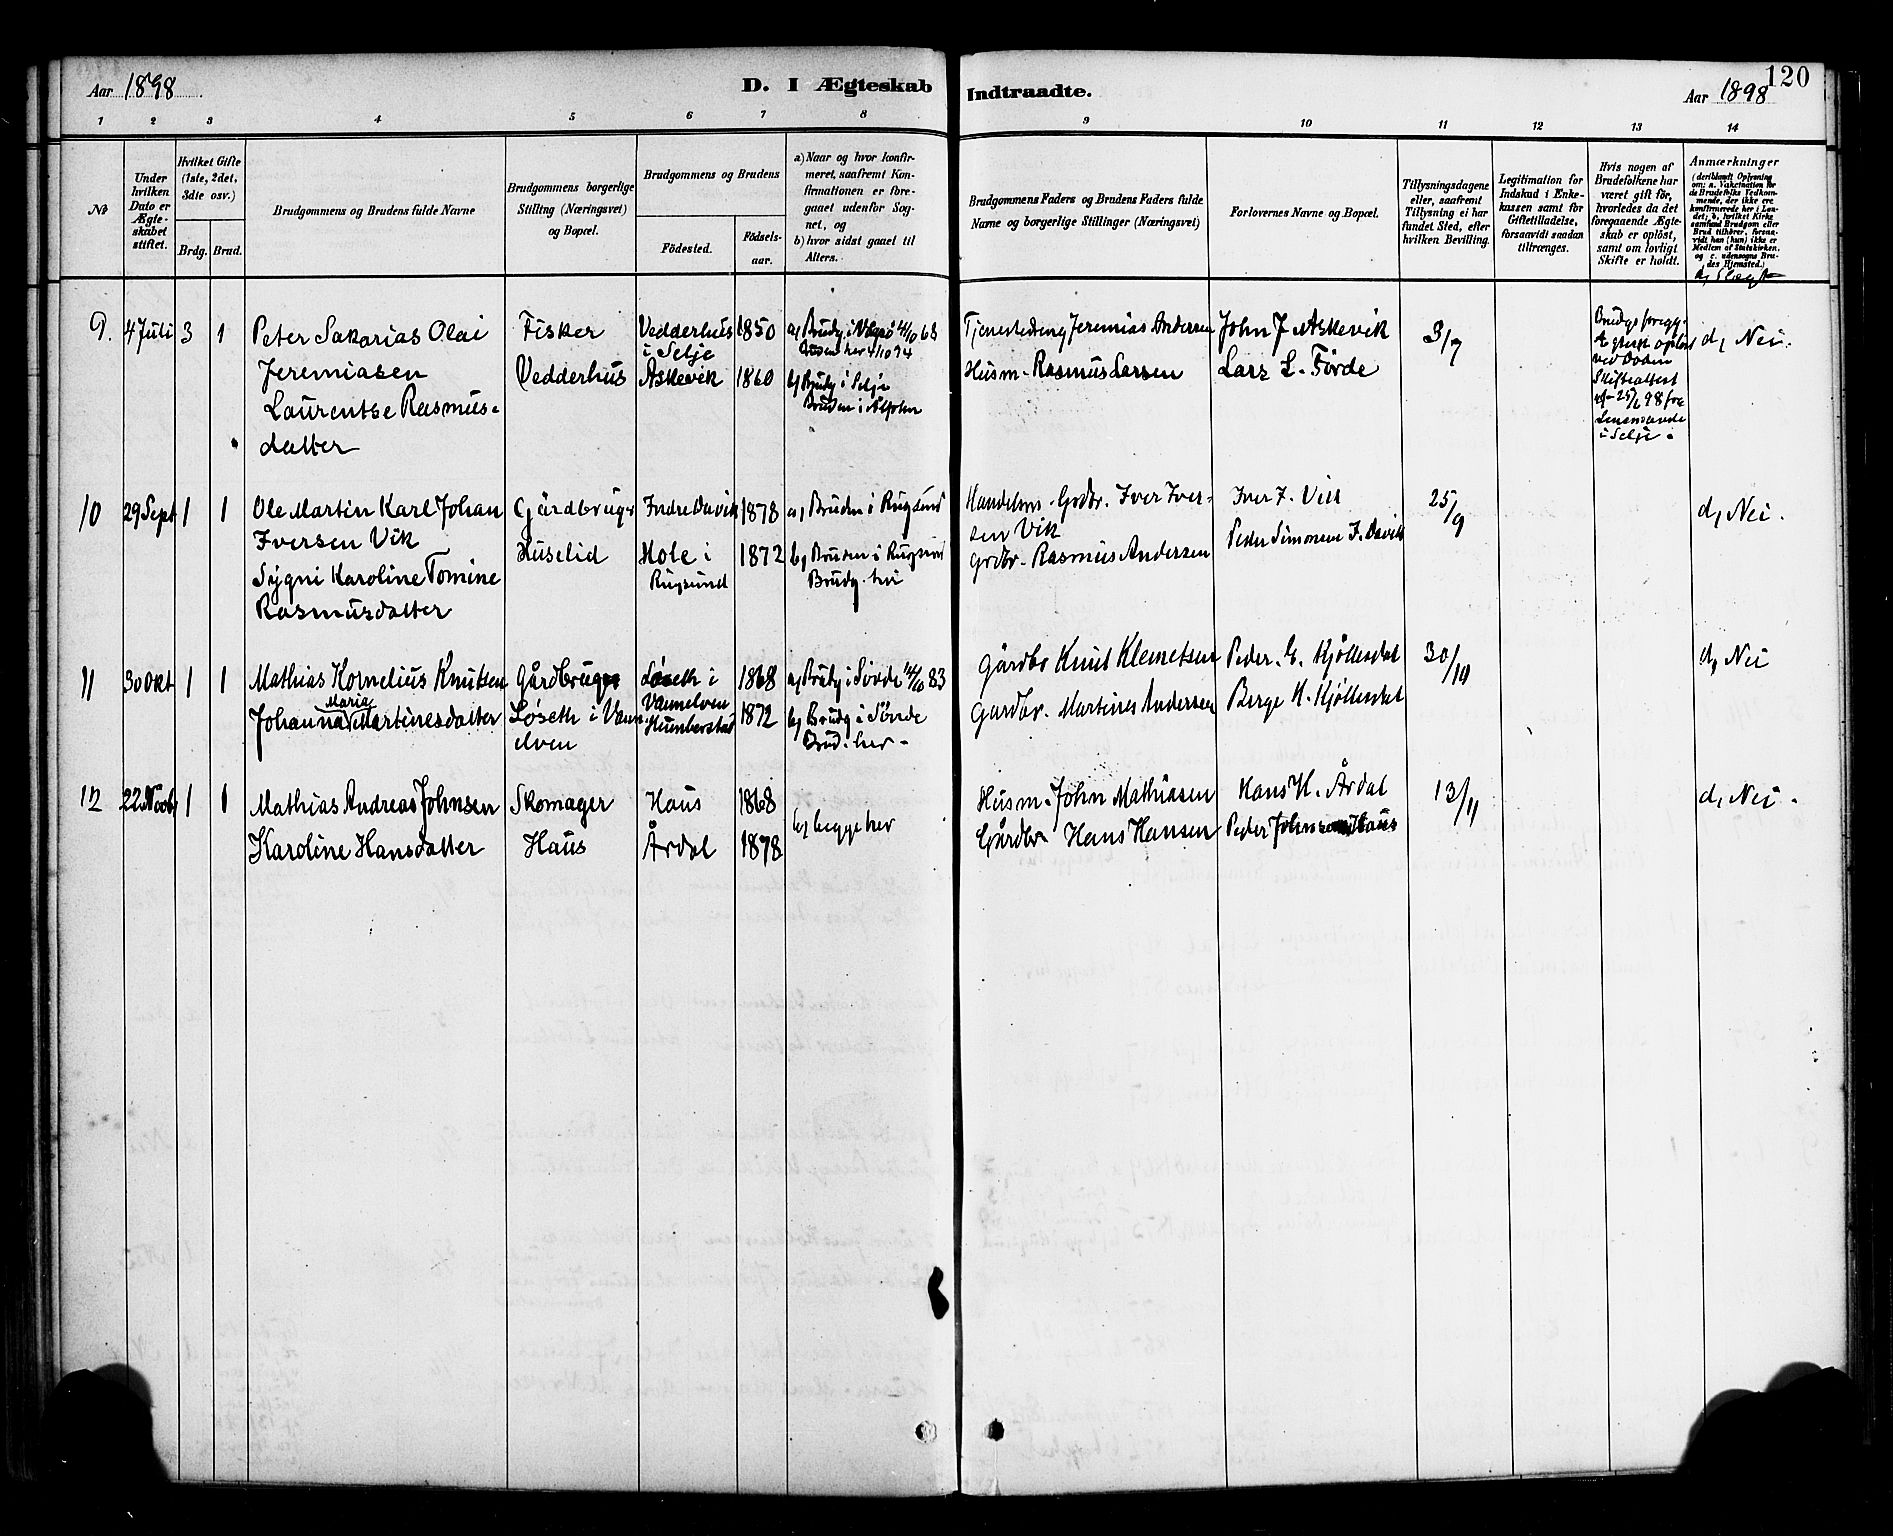 Aar 1898. D. I Ægteskab Indtraadte. Aar 1898 120
1 2 3 4 5 6 7 8 9 10 11 12 13 14
No
Under
hvilken
Dato er
Ægte-
skabet
stiftet.
Hvilket Gifte
(1ste, 2det,
3die osv.)
Brdg. Brud.
Brudgommens og Brudens fulde Navne
Brudgommens borgerlige
Stilling (Næringsvei)
og Bopæl.
Brudgommens og Brudens
Födested.
Födsels-
aar.
a) Naar og hvor konfir-
meret, saafremt Kon-
firmationen er fore-
gaaet udenfor Sog-
net, og
b) hvor sidst gaaet til
Alters.
Brudgommens Faders og Brudens Faders fulde
Navne og borgerlige Stillinger (Næringsvei)
Forlovernes Navne og Bopæl.
Tillysningsdagene
eller, saafremt
Tillysning ei har
fundet Sted, efter
hvilken Bevilling.
Legitimation for
Indskud i Enke-
kassen samt for
Giftetilladelse,
forsaavidt saadan
tiltrænges.
Hvis nogen af
Brudefolkene har
været gift før,
hvorledes da det
foregaaende Ægte-
skab er opløst,
samt om lovligt
Skifte er holdt.
Anmærkninger
(deriblandt Oplysning
om: a. Vakcination for
de Brudefolks Vedkom-
mende, der ikke ere
konfirmerede her i Lan-
det; b. hvilket Kirke-
samfund Brudgom eller
Brud tilhører, forsaa-
vidt han (hun) ikke er
Medlem af Statskirken.
og c. udensogns Bru-
des Hjemsted.)
d, Slægt
9. 4 Juli 3 1
Peter Sakarias Olai
Jeremiasen
Laurentse Rasmus-
datter
Fisker
Vedderhus
Vedderhus
i Selje
Askevik
1850
1860
a, Brudg. i
Bruden her 4/10 74
b, Brudg i Selje
Bruden i Ålfoten
Jeremias Andersen
Husm. Rasmus Larsen
John J Askevik
Lars L. Förde
3/7
Brudgs foregg.
Egtesk opløst
ved Døden
Skifteattest
af 25/6 98 fra
i Selje.
d, Nei.
10 29 Sept 1 1
Ole Martin Karl Johan
Iversen Vik
Sygni Karoline Tomine
Rasmusdatter
Gårdbruger
Huselid
Indre Davik
Hole i
Rugsund
1878
1872
a, Bruden i Rugsund
b, Bruden i Rugsund
Brudg. her
Handelsm. Grdbr. Iver Iver-
sen Vik
Grdbr. Rasmus Andersen
Iver I. Vik
Peder Simonsen I. Davik
25/9
d, Nei.
11 30 Okt 1 1
Mathias Kornelius Knutsen
Maria
Johanna Martinesdatter
Gårdbruger
Løseth i Vann-
elven
Løseth i
Vannelven
Humberstad
1868
1872
a, Brudg i Sövde 14/10 83
b, Brudg i Sövde
Brud. her.
Gårdbr Knut Klemetsen
Gardbr. Martines Andersen
Peder. E. Hjöllesdal
Berge H. Hjöllesdal
30/10
d, Nei
12 22 Novbr 1 1
Mathias Andreas Johnsen
Karoline Hansdatter
Skomager
Haus
Haus
Årdal
1868
1878
b, begge her
Husm. John Mathiasen
Gårdbr Hans Hansen
Hans H. Årdal
Peder Johnsen Haus
13/11
d, Nei.